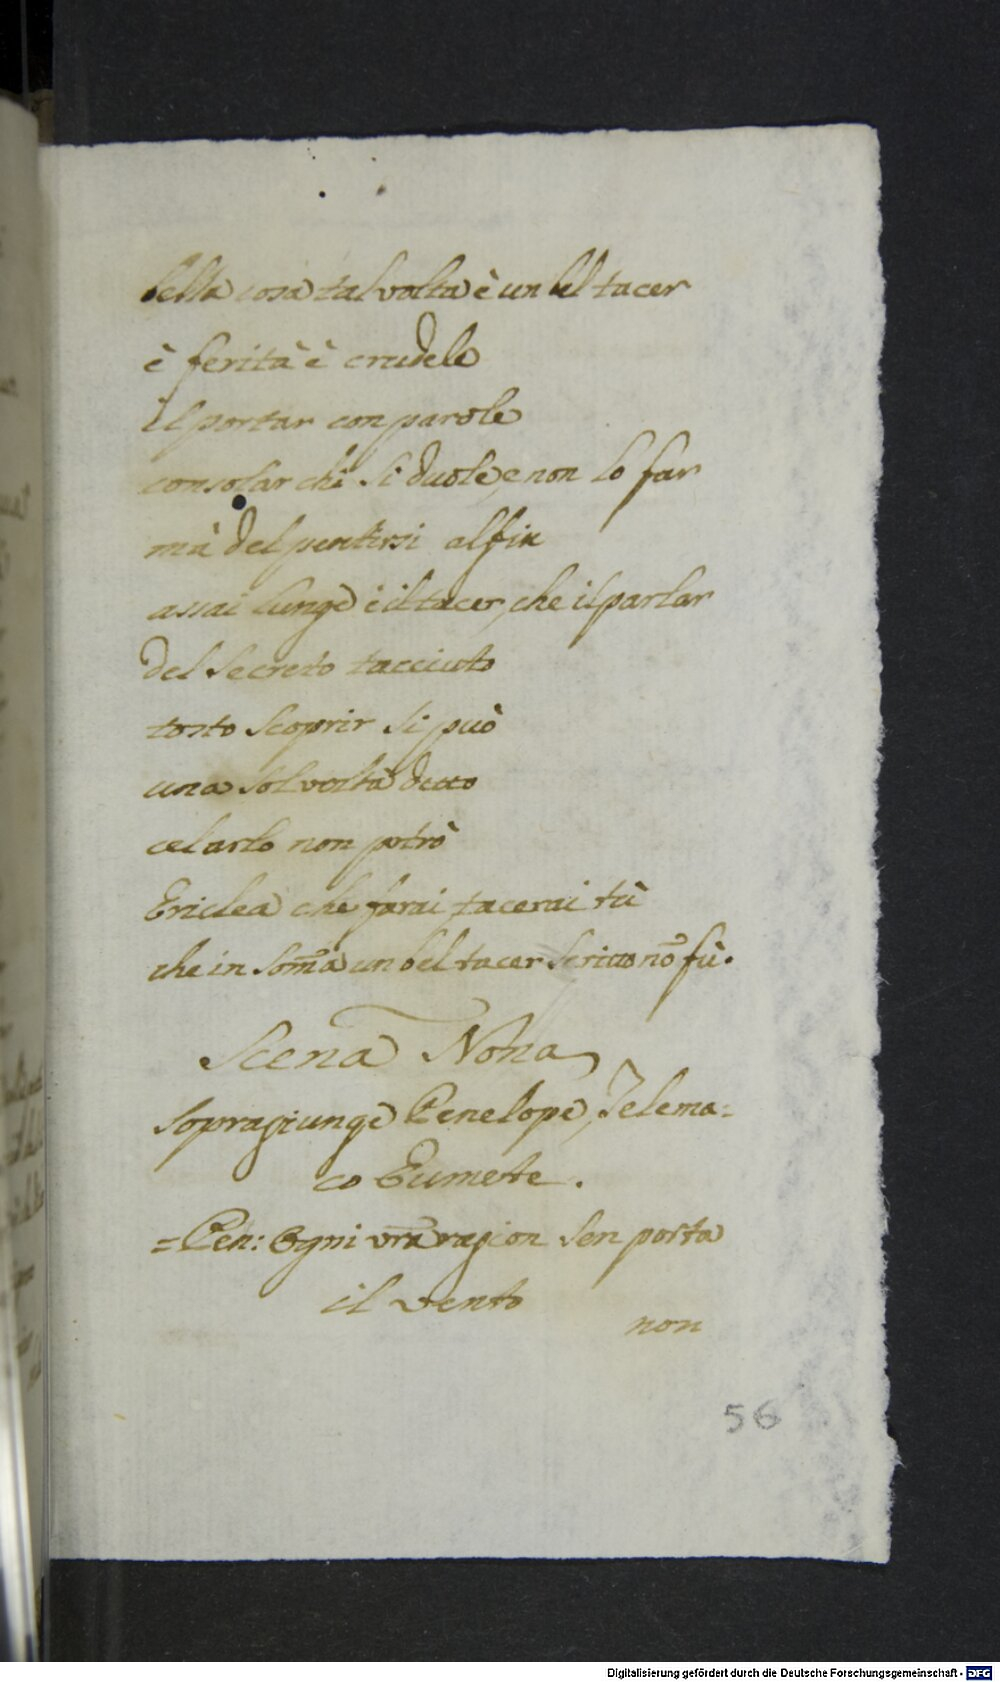 bella cosa tal volta è un bel tacer
è ferità è crudele
il portar con parole
consolar chi si duole, e non lo far
mà del pentirsi alfin
assai lunge è il tacer, che il parlar
del secreto tacciuto
tosto scoprir si può
una sol volta detto
celarlo non potrò
Ericlea che farai tacerai tù
che in som̃a un bel tacer scritto nõ fù.
Scena Nona
sopragiunge Penelope, Telema=
co Eumete.
=Pen: Ogni vr̃a ragion sen porta
il vento
non
56
Digitalisierung gefördert durch die Deutsche Forschungsgemeinschaft - DFG